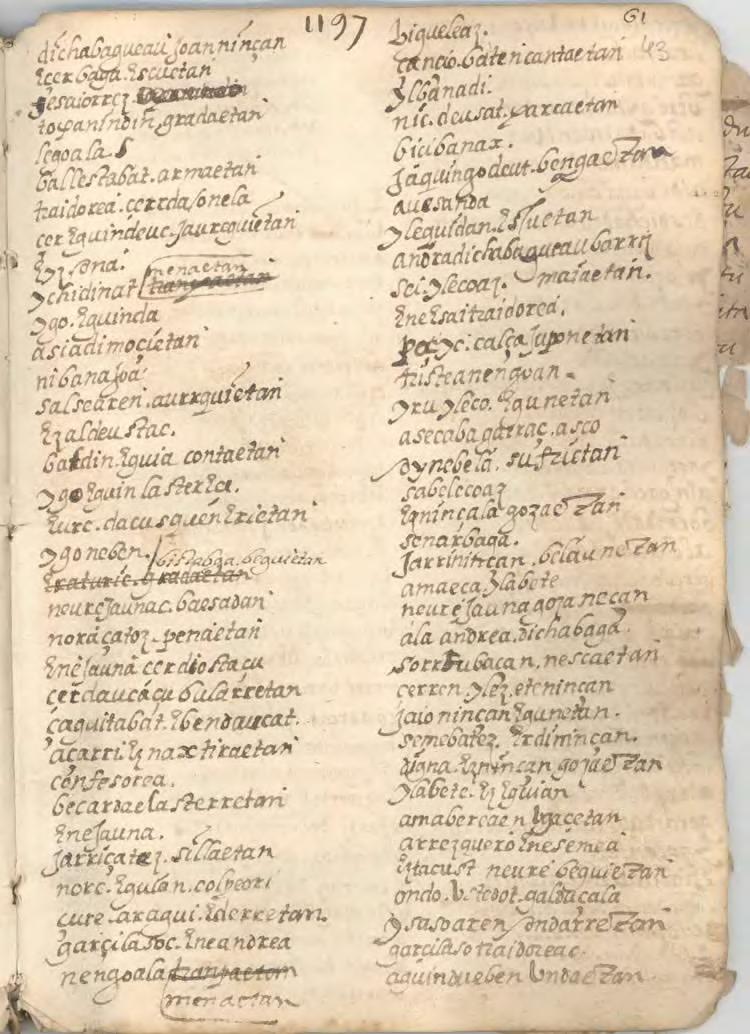 1197
61
43
dichabagueau joannincan
ecer baga. escuetan
jesaiorrez
topanindin gradaetan
legoala. s
ballestabat. armaetan
traidorea. cerrdasonela
cer eguindeuc. jaurequietan
ez sona.
ychidinat menaetan
ygo. eguinda
asiadimocietan
nibanajoa
salsearen. aurrquietan
ez aldeustac.
batdin. eguia contaetan
ygo eguin la sterrca.
eurc. dacusquen erietan
ygoneben. bistabga. beguietan
eraturic. gradaetan
neure jaunac. baesadan
noraçatoz. penaetan
ene jauna cerdiostacu
cerdaucaçu bularretan
çaquitabat. ebendaucat.
açarri. ez naxtiraetan
confesorea.
becardaela sterretan
ene jauna.
jarriçatez. sillaetan
norc. egulan. colpeori
cure. araqui. ederretan.
garcilasoc. ene andrea
nengoala tranjaetan
menaetan
bigueleaz.
cancio. baten cantaetan
ylbanadi.
nic. deusat. parcaetan
bicibanax.
jaquingo deut. bengaetan
aussanda
yleguidan. esuetan
andra dichabagueau barriz
sei. ylecoaz. maiaetan.
ene esaitraidorea.
petxi. calça juponetan
tristeanengoan
yru yleco. egunetan
asecabagarrac. asco
dynebela. sufrietan
sabelecoaz
eznincala gozaetan
senarbaga.
jarrinincan. belaunetan
amaeca ylabete
neure jauna gozanecan
ala andrea. dichabaga
sorrtubacan. nescaetan
cerren ylez. etenincan
jaionincan egunetan.
semebatez. erdinincan.
digna. eznincan gozaetan
ylabete. ez eguian
amabercaen ugacetan
arrezquero enesemea
eztacust neure beguietan
ondo. ustedot. galdacala
ysasoaren ondarretan
garcilaso traidoreac
aguindueben undaetan